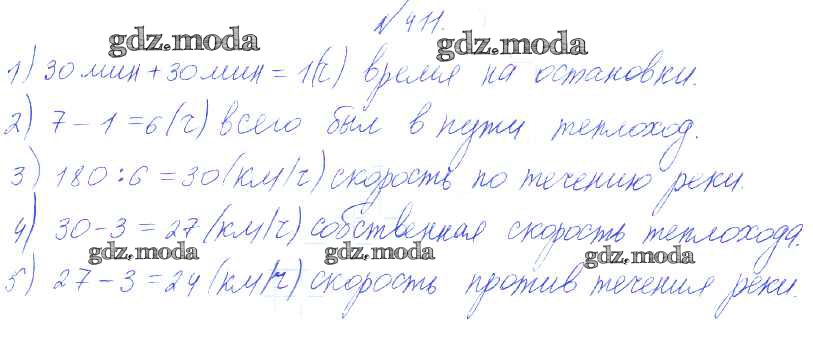 № 411.
gdz.moda gdz.moda
1) 30 мин + 30 мин = 1(ч) время на остановки.
2) 7 - 1 = 6 (ч) всего был в пути теплоход.
3) 180 : 6 = 30 (км/ч) скорость по течению реки.
4) 30 - 3 = 27 (км/ч) собственная скорость теплохода.
gdz.moda gdz.moda gdz.moda
5) 27 - 3 = 24 (км/ч) скорость против течения реки.